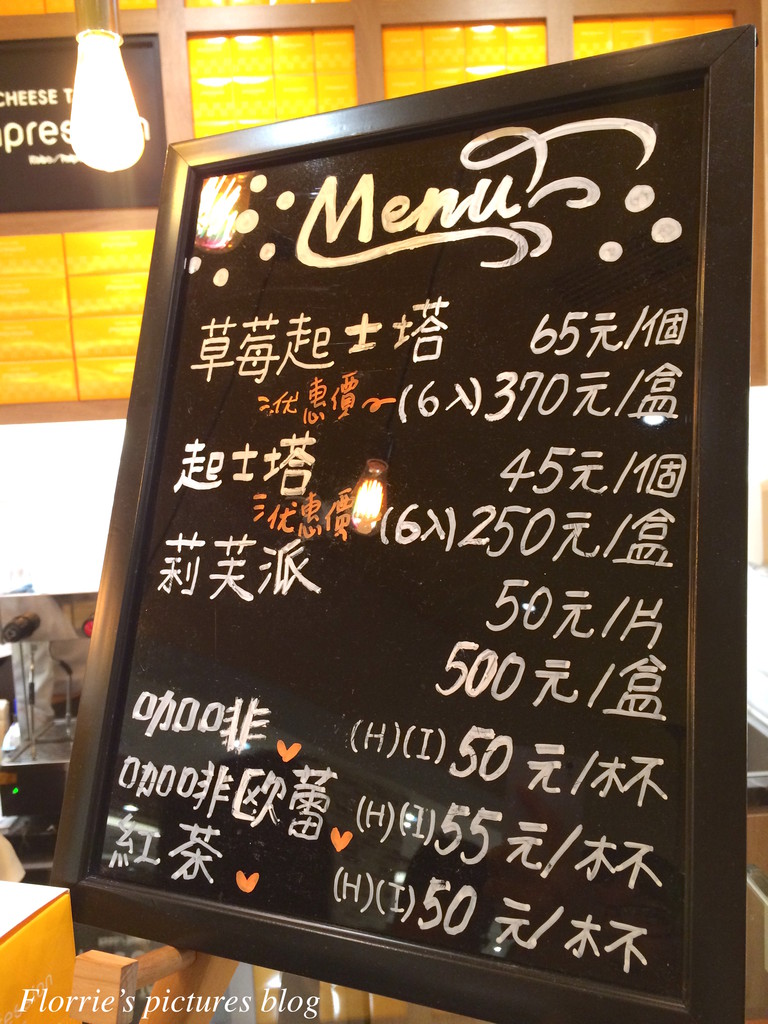 CHEESE T
Menu
草莓起士塔 65元/個
優惠價~(6入)370元/盒
起士塔 45元/個
優惠價 (6入)250元/盒
莉芙派
50元/片
500元/盒
咖啡 (H)(I)50元/杯
咖啡欧蕾 (H)(I)55元/杯
紅茶 (H)(I)50元/杯
Florrie's pictures blog